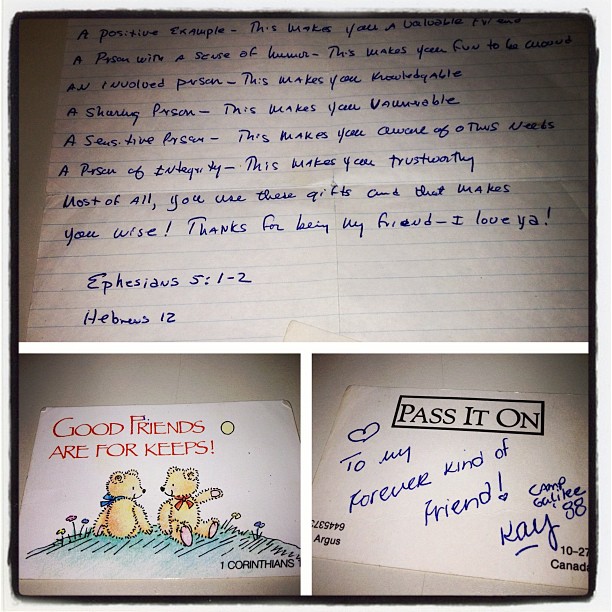 A Positive Example - This makes you A Valuable Friend
A Person with A Sense of humor - This makes you fun to be around
AN involved person - This makes you Knowledgable
A Sharing Person - This makes you Vaunurable
A Sensitive Person - This makes you aware of others Needs
A Person of Integrity - This makes you trustworthy
Most of All, you use these gifts and that makes
you wise! Thanks for being my friend - I love ya!
Ephesians 5:1-2
Hebrews 12
GOOD FRIENDS
ARE FOR KEEPS!
1 CORINTHIANS
PASS IT ON
To my
Forever kind of
Friend!
Kay
Camp
Galilee
88
Argus
10-27
Canada